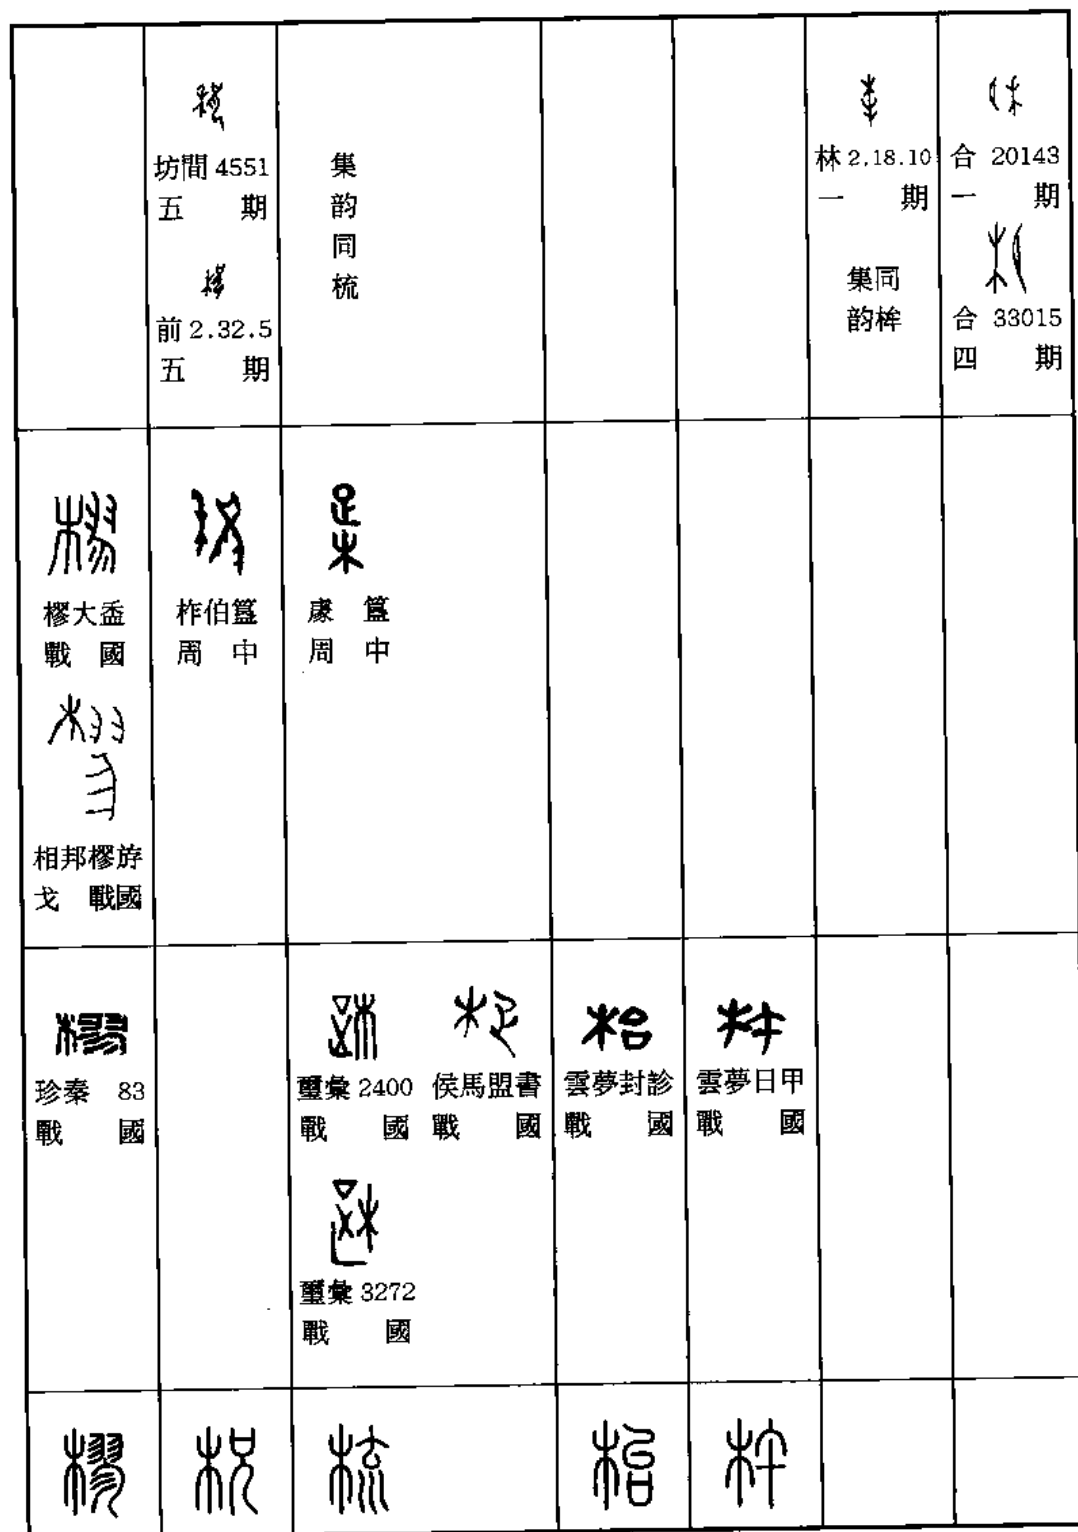 坊間 4551
五 期
前 2.32.5
五 期
集韵同梳
林 2.18.10
一 期
集韵
同桙
合 20143
一 期
合 33015
四 期
樛大盉
戰國
相邦樛斿
戈 戰國
柞伯簋
周中
簋
周中
珍秦 83
戰國
璽彙 2400
戰國
璽彙 3272
戰國
侯馬盟書
戰國
雲夢封診
戰國
雲夢日甲
戰國
樛
柷
梳
枱
杵